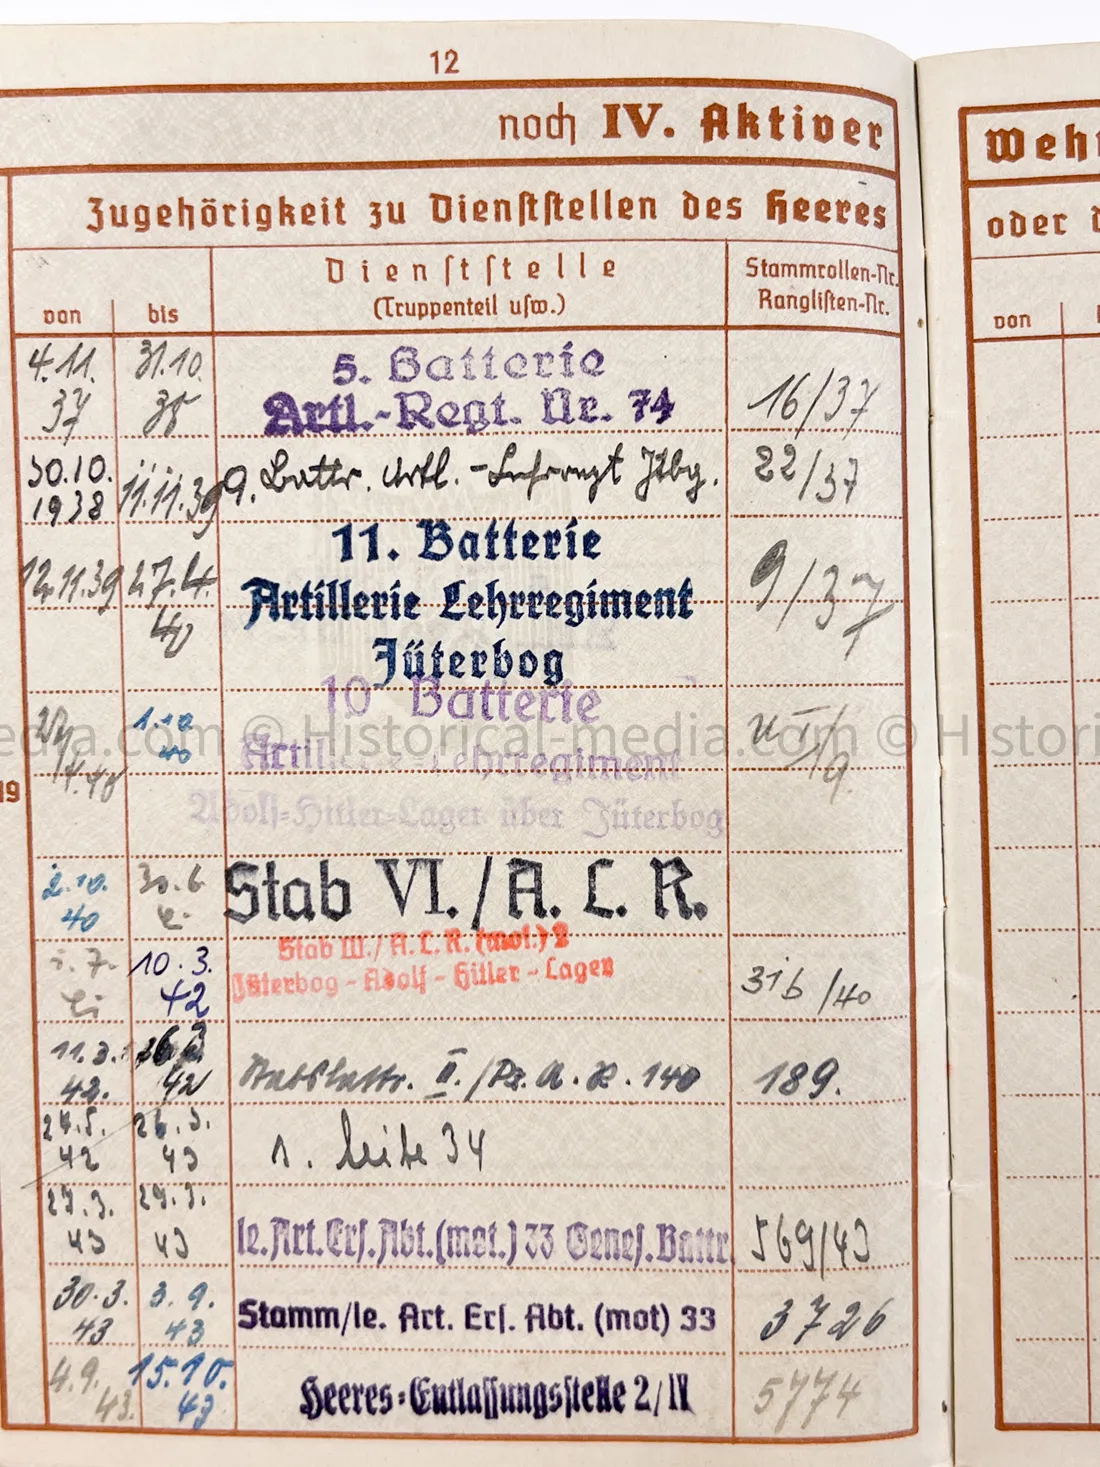 12
noch IV. Aktiver
Zugehörigkeit zu Dienststellen des Heeres
von
bis
Dienststelle
(Truppenteil usw.)
Stammrollen-Nr.
Ranglisten-Nr.
4.11.
37
31.10.
38
5. Batterie
Artl.-Regt. Nr. 74
16/37
30.10.
1938
11.11.39
9. Battr. Artl.-Lehrregt Jtbg.
22/37
12.11.39
27.4.
40
11. Batterie
Artillerie Lehrregiment
Jüterbog
9/37
4.40
1.10.
40
10 Batterie
Artillerie-Lehrregiment
Adolf-Hitler-Lager über Jüterbog
19
2.10.
40
30.6.
Stab VI./A. L. R.
10.3.
42
Stab III./A.L.R. (mot.) 2
Jüterbog-Adolf-Hitler-Lager
31b/40
11.3.
42.
42
Stabsbattr. II./Pz. A. R. 140
189.
24.5.
42
26.3.
43
s. Seite 34
27.3.
43
29.3.
43
le. Art. Ers. Abt. (mot.) 33 Genes. Battr.
569/43
30.3.
43
3.9.
43
Stamm/le. Art. Ers. Abt. (mot) 33
3726
4.9.
43.
15.10.
43
Heeres-Entlassungsstelle 2/IV
5774
Weh
oder d
von
edia.com © Historical-media.com © Histori